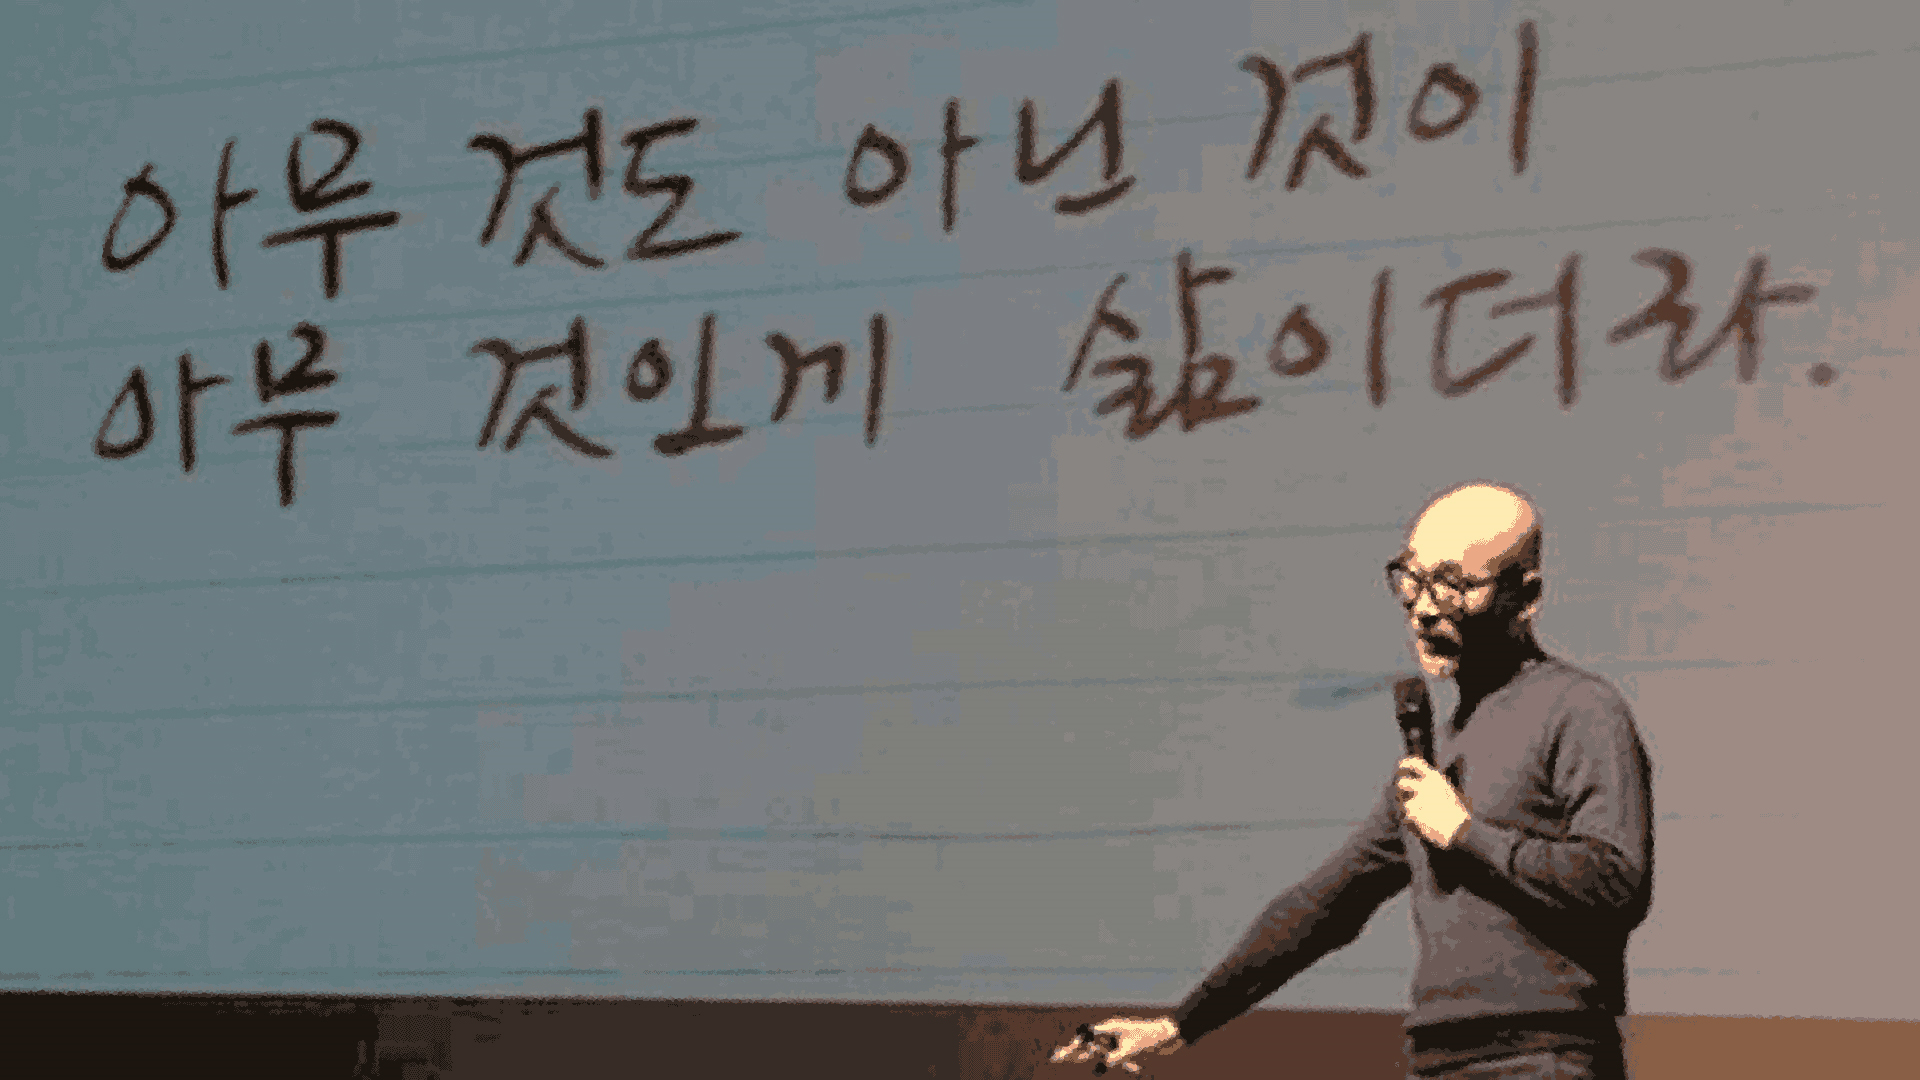 아무 것도 아닌 것이
아무 것인게 삶이더라.